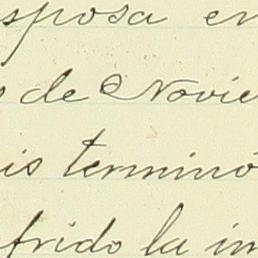 sposa en
de Novie
is terminó
frido la im